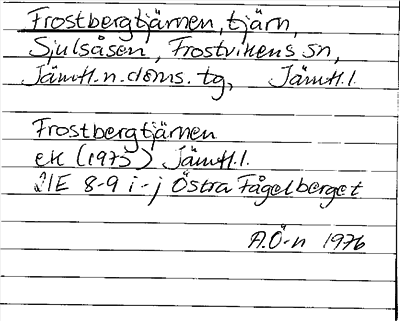 Frostbergtjärnen, tjärn,
Sjulsåsen, Frostvikens sn,
Jämtl. n. doms. tg, Jämtl. l.
Frostbergtjärnen
ek (1975) Jämtl. l.
21E 8-9 i-j Östra Fågelberget
A.Ö-n 1976